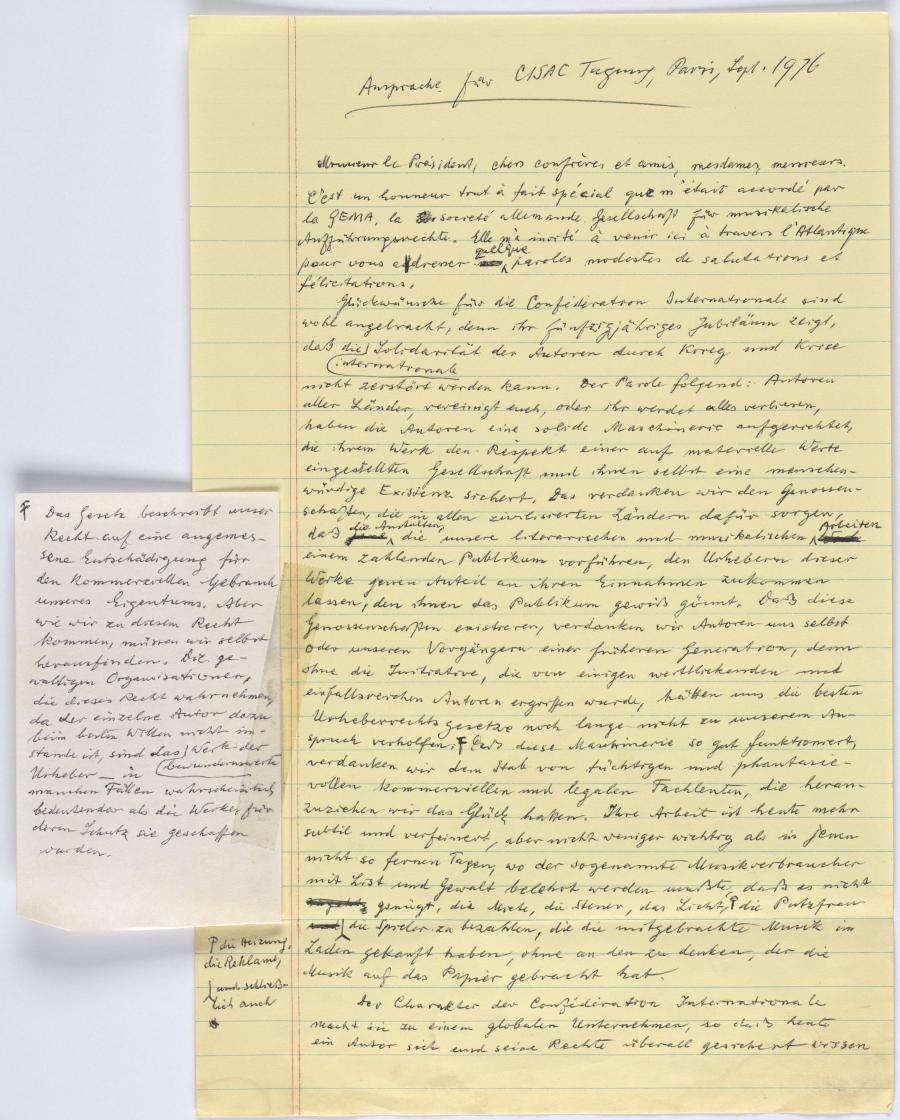 Ansprache für CISAC Tagung, Paris, Sept. 1976
Monsieur le Président, chers confrères et amis, mesdames, messieurs.
C'est un honneur tout à fait spécial que m'était accordé par
la GEMA, la societé allemande Gesellschaft für musikalische
Aufführungsrechte. Elle m'a invité à venir ici à travers l'Atlantique
quelque
pour vous adresser paroles modestes de salutations et
félicitations.
Glückwünsche für die Confédération Internationale sind
wohl angebracht, denn ihr fünfzigjähriges Jubiläum zeigt,
daß die Solidarität der Autoren durch Krieg und Krise
internationale
nicht zerstört werden kann. Der Parole folgend: Autoren
aller Länder, vereinigt euch, oder ihr werdet alles verlieren,
haben die Autoren eine solide Maschinerie aufgerichtet,
die ihrem Werk den Respekt einer auf materielle Werte
eingestellten Gesellschaft und ihnen selbst eine menschen-
würdige Existenz sichert. Das verdanken wir den Genossen-
schaften, die in allen zivilisierten Ländern dafür sorgen,
die Anstalten, Arbeiten
daß die unsere literarischen und musikalischen
einem zahlenden Publikum vorführen, den Urhebern dieser
Werke jenen Anteil an ihren Einnahmen zukommen
lassen, den ihnen das Publikum gewiß gönnt. Daß diese
Genossenschaften existieren, verdanken wir Autoren uns selbst
oder unseren Vorgängern einer früheren Generation, denn
ohne die Initiative, die von einigen weitblickenden und
einfallsreichen Autoren ergriffen wurde, hätten uns die besten
Urheberrechtsgesetze noch lange nicht zu unserem An-
spruch verholfen. Daß diese Maschinerie so gut funktioniert,
verdanken wir dem Stab von tüchtigen und phantasie-
vollen kommerziellen und legalen Fachleuten, die heran-
zuziehen wir das Glück hatten. Ihre Arbeit ist heute mehr
subtil und verfeinert, aber nicht weniger wichtig als in jenen
nicht so fernen Tagen, wo der sogenannte Musikverbraucher
mit List und Gewalt belehrt werden mußte, daß es nicht
genügt, die Miete, die Steuer, das Licht, die Putzfrau
die Spieler zu bezahlen, die die mitgebrachte Musik im
Laden gekauft haben, ohne an den zu denken, der die
Musik auf das Papier gebracht hat.
Der Charakter der Confédération Internationale
macht sie zu einem globalen Unternehmen, so daß heute
ein Autor sich und seine Rechte überall gesichert wissen
Das Gesetz beschreibt unser
Recht auf eine angemes-
sene Entschädigung für
den kommerziellen Gebrauch
unseres Eigentums. Aber
wie wir zu diesem Recht
kommen, müssen wir selbst
herausfinden. Die ge-
waltigen Organisationen,
die dieses Recht wahrnehmen,
da der einzelne Autor dazu
beim besten Willen nicht im-
stande ist, sind das Werk der
bewundernswerte
Urheber – in
manchen Fällen wahrscheinlich
bedeutender als die Werke, für
deren Schutz sie geschaffen
wurden.
die Heizung,
die Reklame,
und schließ-
lich auch